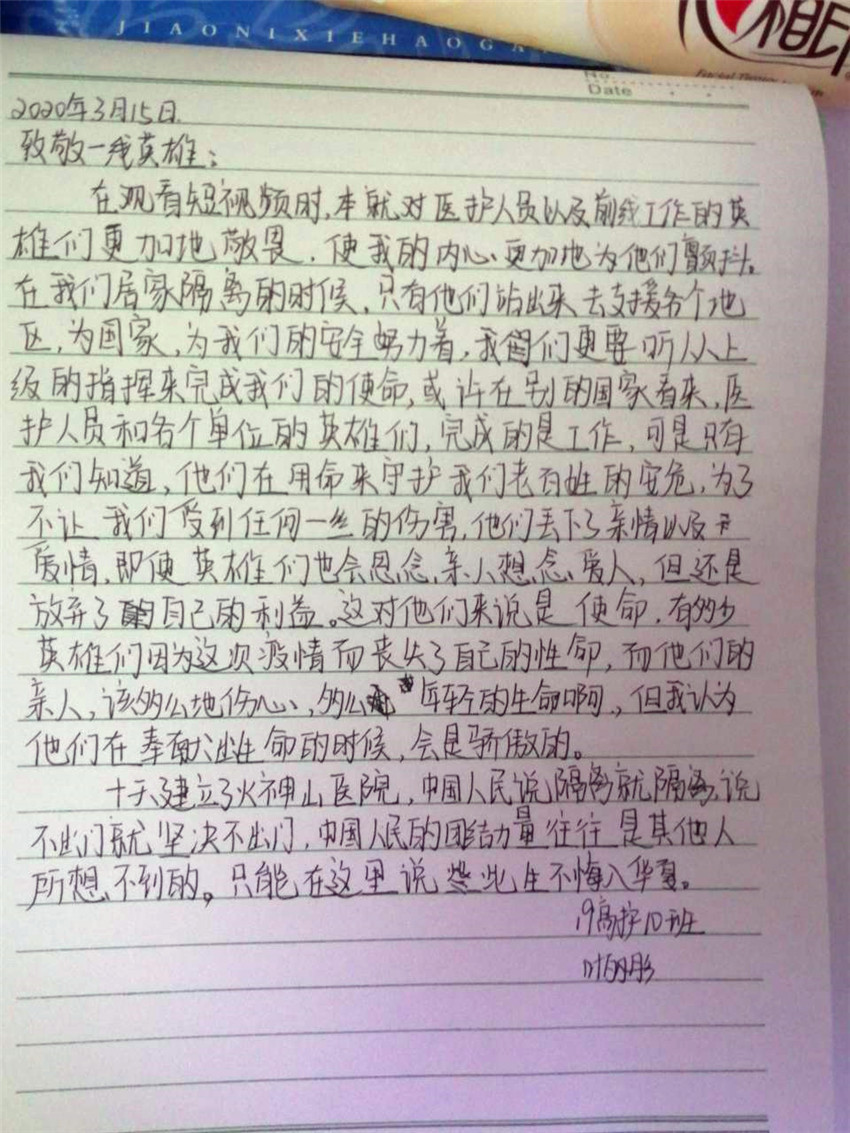 JIAONIXIEHAOGA
相印
No.
Date
2020年3月15日.
致敬一线英雄：
在观看短视频时,本就对医护人员以及前线工作的英
雄们更加地敬畏.使我的内心更加地为他们颤抖。
在我们居家隔离的时候,只有他们站出来去支援各个地
区,为国家,为我们的安全努力着,我们更要听从上
级的指挥来完成我们的使命,或许在别的国家看来,医
护人员和各个单位的英雄们,完成的是工作,可是只有
我们知道,他们在用命来守护我们老百姓的安危,为了
不让我们受到任何一丝的伤害,他们丢下了亲情以及
爱情,即使英雄们也会思念亲人想念爱人,但还是
放弃了自己的利益。这对他们来说是使命.有多少
英雄们因为这次疫情而丧失了自己的性命,而他们的
亲人,该多么地伤心,多么年轻的生命啊,但我认为
他们在奉献出生命的时候,会是骄傲的。
十天建立了火神山医院,中国人民说隔离就隔离,说
不出门就坚决不出门,中国人民的团结力量往往是其他人
所想不到的。只能在这里说些此生不悔入华夏。
19高护10班